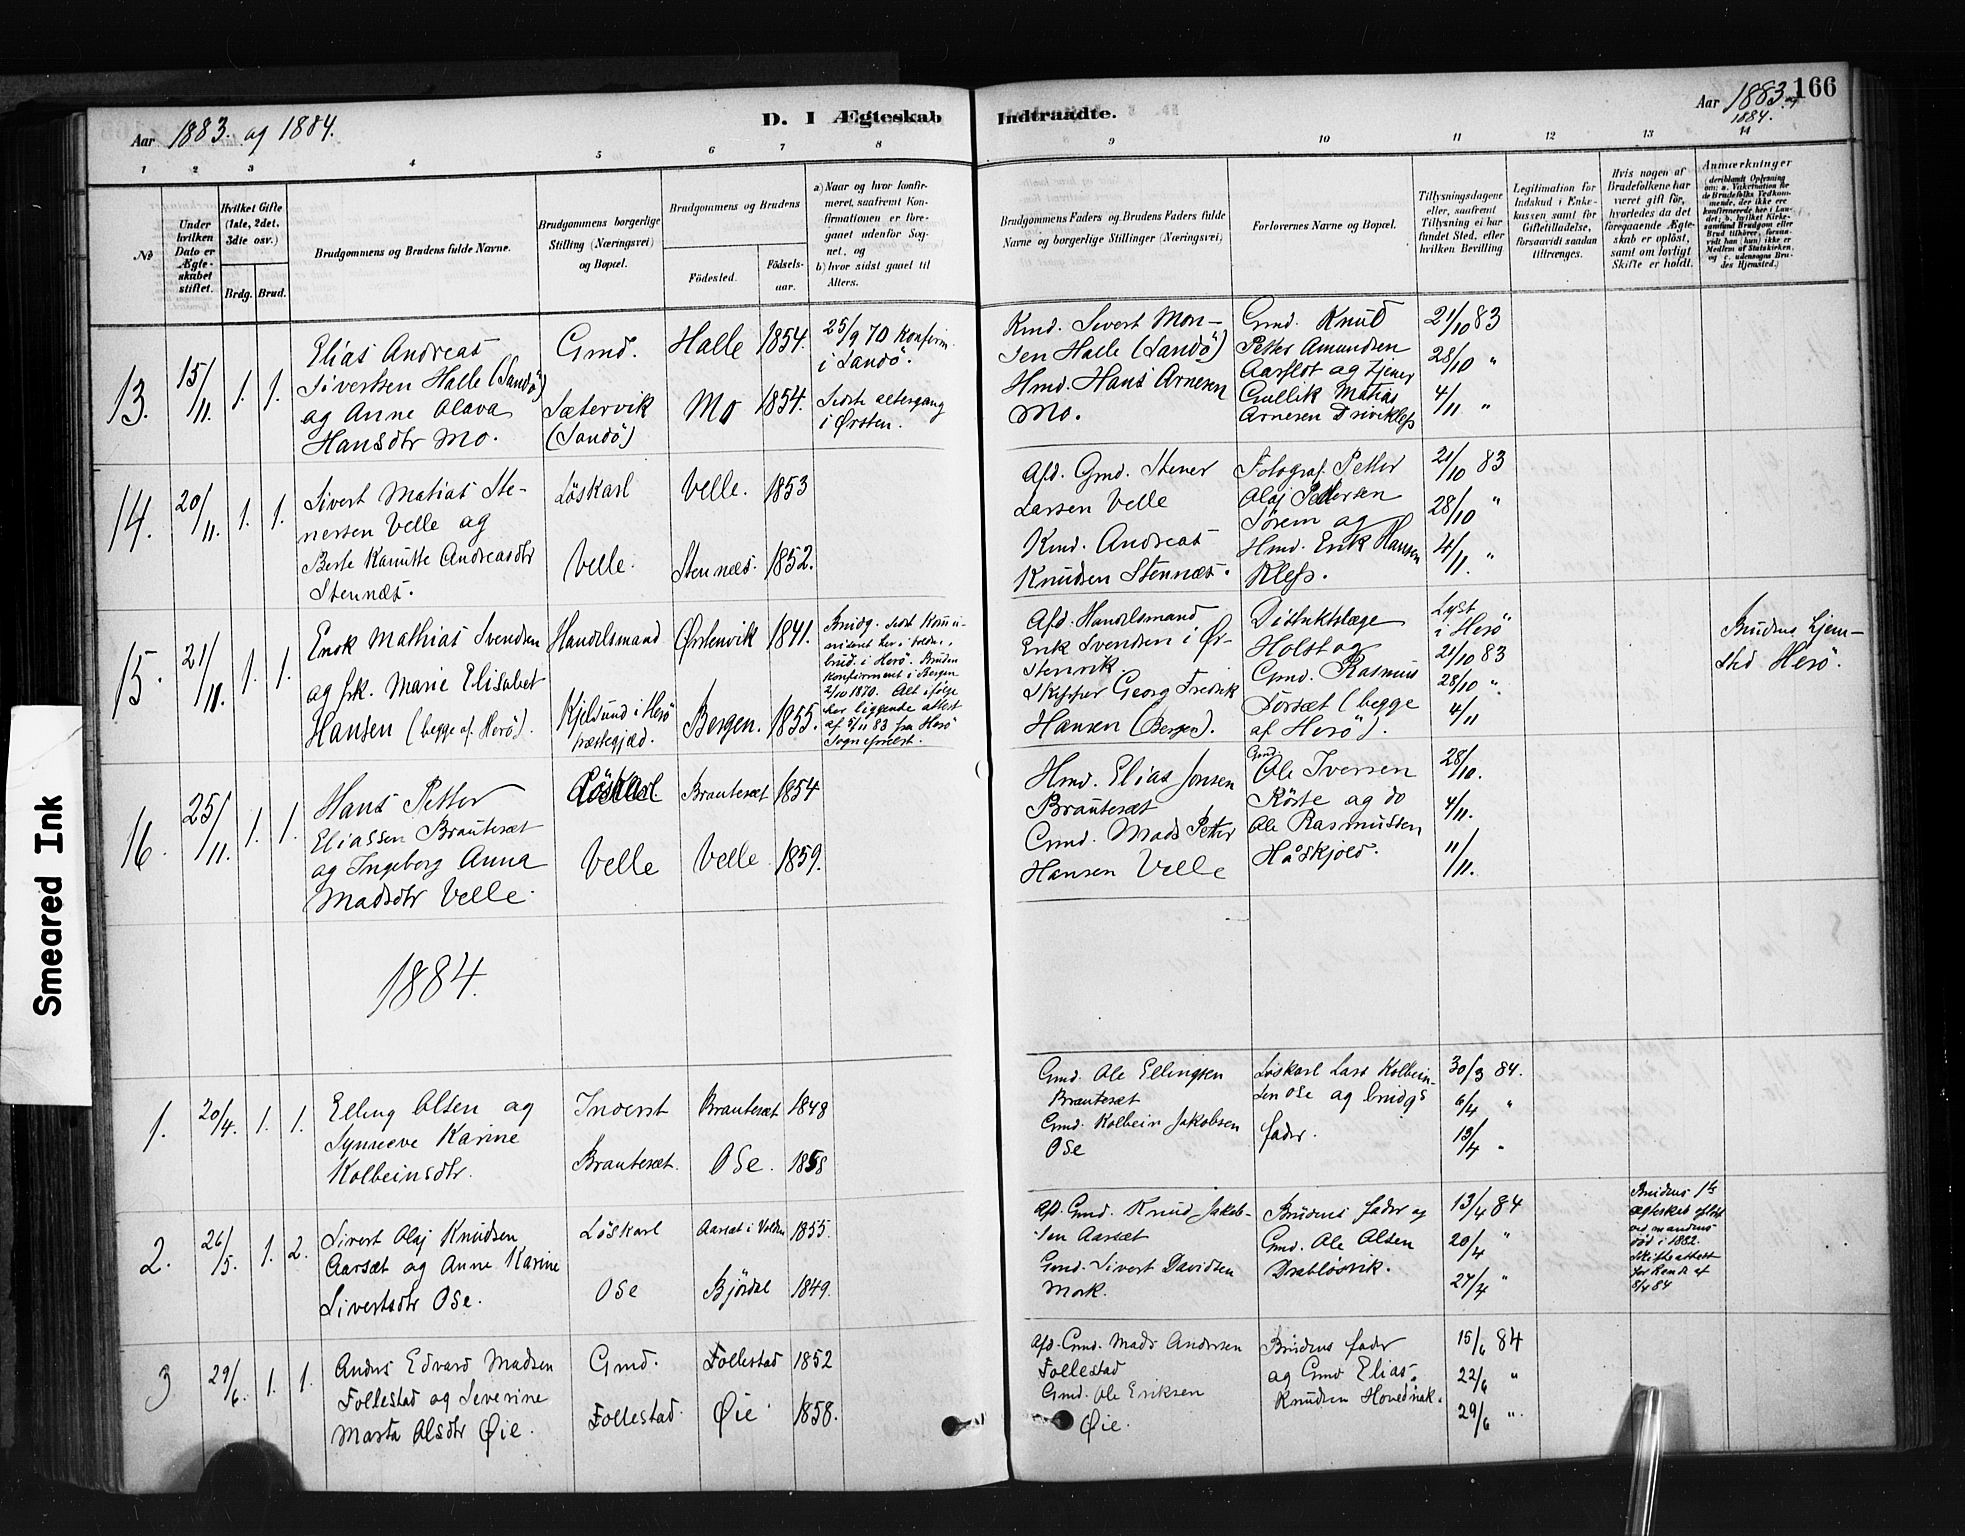 Aar 1883. og 1884.
D. I Ægteskab
Indtraadte.
Aar 1883 og 1884.
166
1 2 3 4 5 6 7 8 9 10 11 12 13 14
No
Under hvilken Dato er Ægteskabet stiftet.
Hvilket Gifte (1ste, 2det, 3die osv.)
Brdg. Brud.
Brudgommens og Brudens fulde Navne.
Brudgommens borgerlige Stilling (Næringsvei) og Bopæl.
Brudgommens og Brudens
Födested.
Födselsaar.
a) Naar og hvor konfirmeret, saafremt Konfirmationen er foregaaet udenför Sognet, og
b) hvor sidst gaaet til Alters.
Brudgommens Faders og Brudens Faders fulde Navne og borgerlige Stillinger (Næringsvei)
Forlovernes Navne og Bopæl.
Tillysningsdagene eller, saafremt Tillysning ei har fundet Sted, efter hvilken Bevilling
Legitimation for Indskud i Enkekassen samt for Giftetilladelse, forsaavidt saadan tiltrænges.
Hvis nogen af Brudefolkene har været gift før, hvorledes da det foregaaende Ægteskab er oplöst, samt om lovligt Skifte er holdt.
Anmærkninger
13. 15/11. 1. 1.
Elias Andreas
Sivertsen Halle (Sandö)
og Anne Olava
Hansdtr Mo.
Gmd.
Sætervik
(Sandö)
Halle 1854.
Mo 1854.
25/9 70 konfirm.
i Sandö.
Sidste altergang
i Ørsten.
Kmd. Sivert Mon-
sen Halle (Sandö)
Hmd. Hans Arnesen
Mo.
Gmd. Knud
Petter Amundsen
Aarflot og tjener
Gullik Matias
Arnesen
21/10 83
28/10 "
4/11 "
14. 20/11. 1. 1.
Sivert Matias Ste-
nersen Velle og
Berte Kanutte Andreasdtr
Stennæs.
Löskarl
Velle.
Velle. 1853
Stennæs. 1852.
Afd. Gmd. Stener
Larsen Velle
Kmd. Andreas
Knudsen Stennæs.
Fotograf Petter
Olaj Pettersen
Sörem og
Hmd. Erik Hansen
Kleps.
21/10 83
28/10 "
4/11. "
15. 21/11. 1. 1.
Enok Mathias Svendsen
og frk. Marie Elisabet
Hansen (begge af Herö).
Handelsmand
Kjelsund i Herö
præstegjæd.
Ørstenvik 1841.
Bergen. 1855.
Brudg. sidst kommu-
niceret her i
brud. i Herö. Bruden
konfirmeret i Bergen
2/10 1870. Alt ifølge
her liggende attest
af 5/11 83 fra Herö
Sognepræst.
Afd. Handelsmand
Erik Svendsen i Ør-
stenvik.
Skipper Georg Fredrik
Hansen (Bergen).
Distriktslæge
Holst og
Gmd. Rasmus
Torsæt (begge
af Herö).
Lyst
i Herö "
21/10 83
28/10 "
4/11
Brudens hjem-
sted Herö.
16. 25/11. 1. 1.
Hans Petter
Eliassen Brautesæt
og Ingeborg Anna
Madsdtr Velle.
Löskarl
Velle
Brautesæt 1854
Velle 1859.
Hmd. Elias Jonsen
Brautesæt
Gmd. Mads Petter
Hansen Velle
Gmd.
Ole Iversen
Röste og do
Ole Rasmussen
Håskjold.
28/10.
4/11.
11/11.
1884.
1. 20/4. 1. 1.
Elling Olsen og
Synneve Karine
Kolbeinsdtr.
Inderst
Brautesæt.
Brautesæt 1848
Ose. 1858
Gmd. Ole Ellingsen
Brautesæt
Gmd. Kolbein Jakobsen
Ose
Löskarl Lars Kolbein-
sen Ose og brudgs
fader.
30/3 84.
6/4 "
13/4 "
2. 26/5. 1. 2.
Sivert Olaj Knudsen
Aarsæt og Anne Karine
Sivertsdtr Ose.
Löskarl
Ose
Aarsæt i Volden 1855.
Björdal 1849.
Afd. Gmd. Knud Jakob-
sen Aarsæt
Gmd. Sivert Davidsen
Mork.
Brudens fader og
Gmd. Ole Olsen
Drabløsvik.
13/4 84
20/4 "
27/4 "
Brudens 1ste
ægteskab opløst
ved mandens
död i 1882.
Skifteattest
foreviist af
8/4 84
3 29/6. 1. 1.
Anders Edvard Madsen
Follestad og Severine
Marta Olsdtr Øie.
Gmd.
Follestad.
Follestad 1852
Øie 1858.
Afd. Gmd. Mads Andersen
Follestad
Gmd. Ole Eriksen
Øie.
Brudens fader
og Gmd Elias
Knudsen Hovednak.
15/6 84
22/6 "
29/6 ".
Smeared Ink